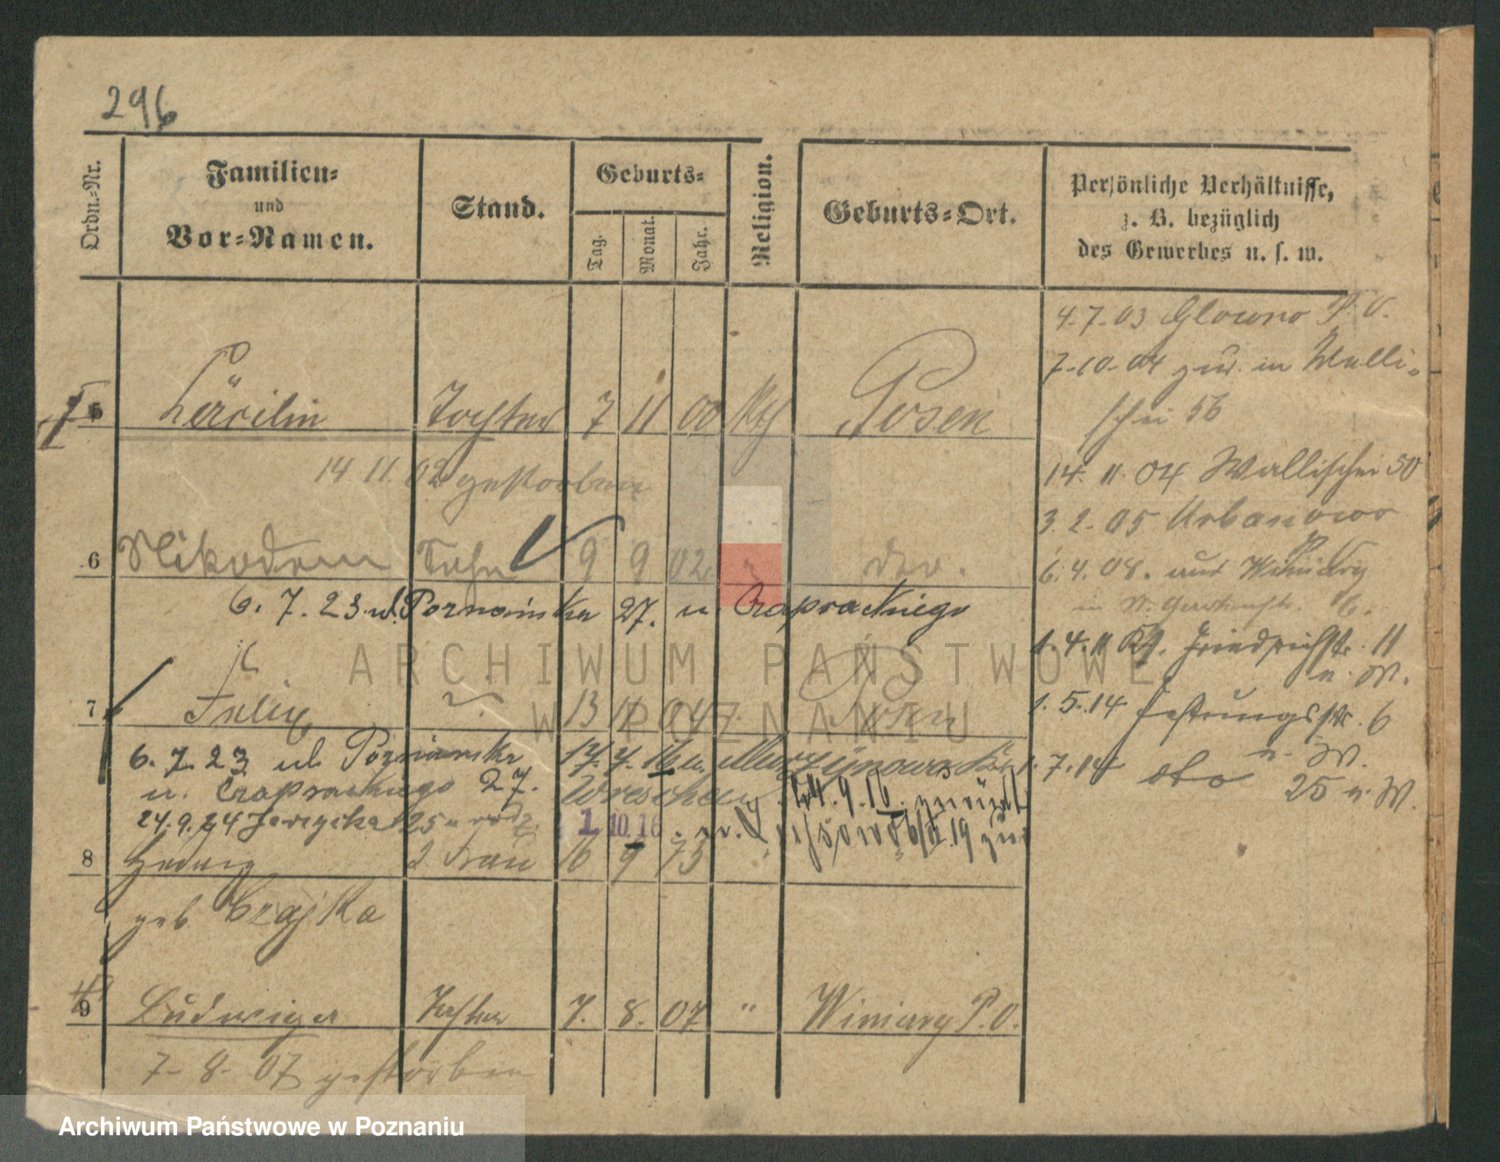 296
Ordn.-Nr.
Familien-
und
Vor-Namen.
Stand.
Geburts-
Tag.
Monat.
Jahr.
Religion.
Geburts-Ort.
Persönliche Verhältnisse,
z. B. bezüglich
des Gewerbes u. s. w.
4.7.03 Glowno P. O.
7.10.04 zur. in Walli-
schei 56
5 Tochter 7 11 00 Kth Posen
14 11. 02 gestorben
14. 11. 04 Wallischei 50
3. 2. 05 Urbanowo
6 Nikodem Sohn 9 9 02 " dto.
6. 4. 08. Winiary
6. 7. 23 ul. Poznańska 27. u. Czaprackiego
1. 4. 11 Friedrichstr. 11
u. W.
7 Felix 13 11 04 Posen
1. 5. 14 Festungsstr. 6
u. W.
6. 7. 23 ul Poznanska
u. Czaprackiego 27.
1. 7. 14 dto 25 u. W.
Wreschen 24. 9. 16 zurück
24. 9. 24 25 u
1. 10. 16
8 Hedwig 2. Frau 16 9 73 "
geb Czajka
9 Ludwiga Tochter 7. 8. 07 " Winiary P. O.
7 - 8 - 07 gestorben
ARCHIWUM PAŃSTWOWE
W POZNANIU
Archiwum Państwowe w Poznaniu